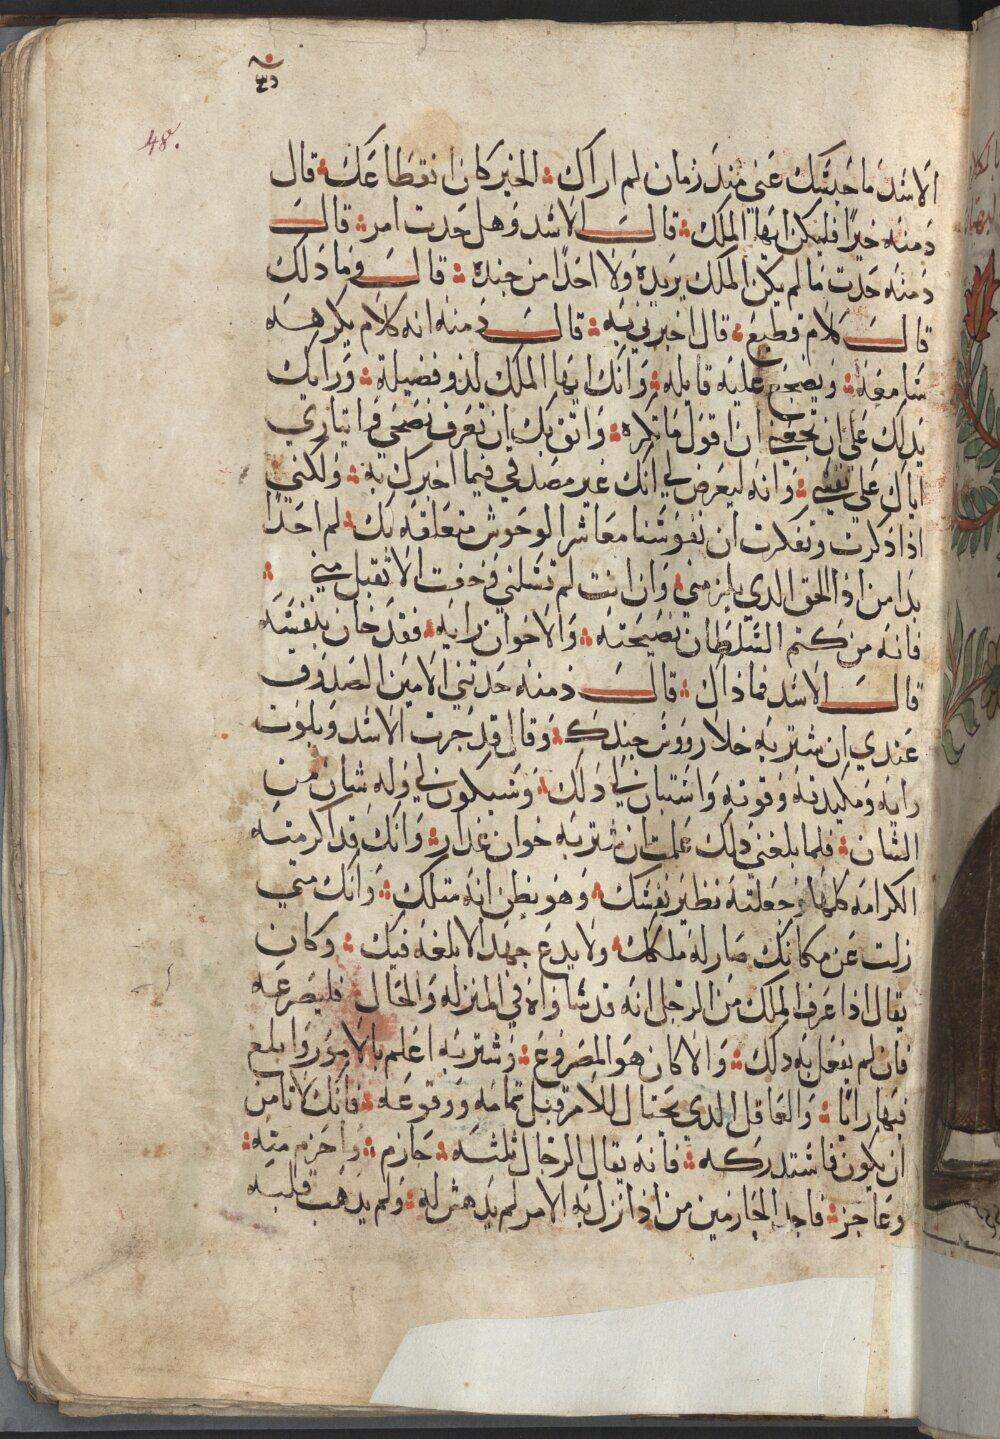 48.
الاسد ما حبسك عني منذ زمان لم اراك ؛ الخير كان انقطاعك ؛ قال
دمنه خيرًا فليكن ايها الملك ؛ قال الاسد وهل حدت امر ؛ قال
دمنه حدت ما لم يكن الملك يريده ولا احدًا من جنده ؛ قال وما دلك
قال كلام فطيع ؛ قال اخبرني به ؛ قال دمنه انه كلام يكرهه
سامعه ؛ و عليه قايله ؛ وانك ايها الملك لذو فضيله ؛ ورايك
يدلك على ان ان اقول ما تكره ؛ واثق بك ان تعرف نصحي وايتاري
اياك على نفسي ؛ وانه ليعرض لي انك غير مصدقي فيما اخبرك به ؛ ولكني
اذا ذكرت وتفكرت ان نفوسنا معاشر الوحوش متعلقه بك ؛ لم احدًا
بدا من اذا الحق الدي يلزمني ؛ وان انت لم تسلني وخفت الا تقبل مني ؛
فانه من كتم السلطان نصيحته ؛ والاخوان رايه ؛ فقد خان بنفسه
قال الاسد فما ذاك ؛ قال دمنه حدتني الامين الصدوق
عندي ان شتربه خلا روس جندك ؛ وقال قد جربت الاسد وبلوت
رايه ومكيدته وقوته واستبان لي دلك ؛ وسيكون لي وله شان من
الشان ؛ فلما بلغني دلك علمت ان شتربه خوان غدار ؛ وانك قد اكرمته
الكرامه كلها وجعلته نظير نفسك ؛ وهو يظن انه متلك ؛ وانك متي
زلت عن مكانك صار له ملكك ؛ ولا يدع جهدا الا بلغه فيك ؛ وكان
يقال اذا عرف الملك من الرجل انه قد ساواه في المنزله والحال ؛ فليصرعه
فان لم يفعل به دلك ؛ والا كان هو المصروع ؛ وشتربه اعلم بالامور وابلغ
فيها رايًا ؛ والعاقل الدي يحتال للامر قبل تمامه ووقوعه ؛ فانك لا تامن
ان يكون فاستدركه ؛ فانه يقال الرجال ثلثه ؛ حازم ؛ واحزم منه ؛
وعاجز ؛ فاحد الحازمين من اذا نزل به الامر لم يدهش له ؛ ولم يدهب قلبه